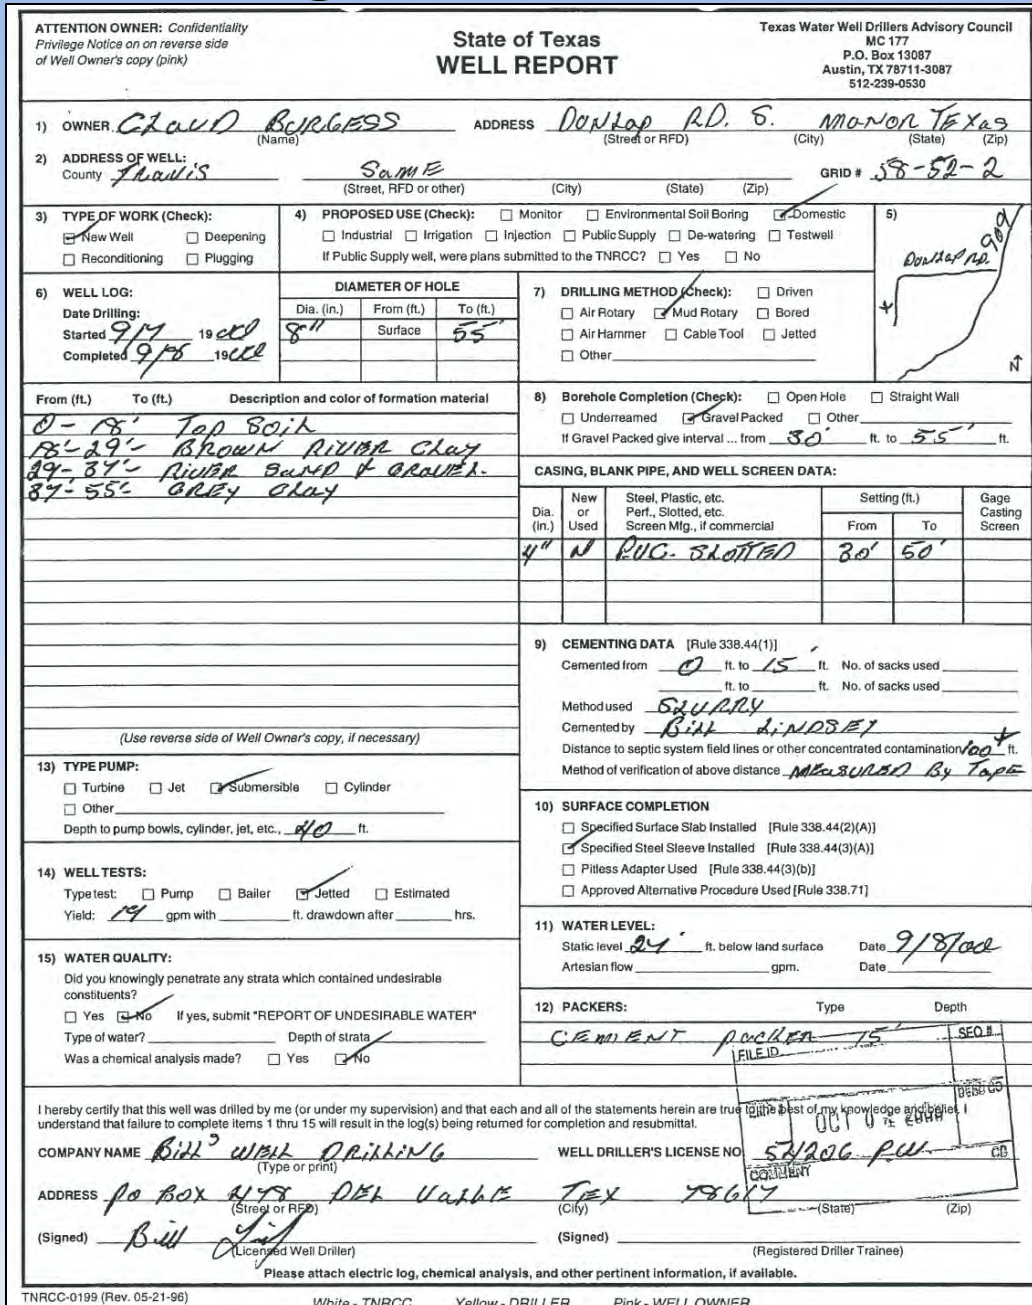 ATTENTION OWNER: Confidentiality
Privilege Notice on on reverse side
of Well Owner's copy (pink)
State of Texas
WELL REPORT
Texas Water Well Drillers Advisory Council
MC 177
P.O. Box 13087
Austin, TX 78711-3087
512-239-0530
1) OWNER CLAUD BURGESS ADDRESS DUNLAP RD. S. MANOR TEXAS
(Name) (Street or RFD) (City) (State) (Zip)
2) ADDRESS OF WELL:
County TRAVIS SAME GRID # 58-52-2
(Street, RFD or other) (City) (State) (Zip)
3) TYPE OF WORK (Check):
New Well Deepening
Reconditioning Plugging
4) PROPOSED USE (Check): Monitor Environmental Soil Boring Domestic
Industrial Irrigation Injection Public Supply De-watering Testwell
If Public Supply well, were plans submitted to the TNRCC? Yes No
5)
DUNLAP RD. 969
N
6) WELL LOG:
Date Drilling:
Started 9/7 19
Completed 9/8 19
DIAMETER OF HOLE
Dia. (in.) From (ft.) To (ft.)
8" Surface 55'
7) DRILLING METHOD (Check): Driven
Air Rotary Mud Rotary Bored
Air Hammer Cable Tool Jetted
Other
From (ft.) To (ft.) Description and color of formation material
0- 18' TOP SOIL
18'-29'- BROWN RIVER CLAY
29-37'- RIVER SAND & GRAVEL-
37-55'- GREY CLAY
(Use reverse side of Well Owner's copy, if necessary)
8) Borehole Completion (Check): Open Hole Straight Wall
Underreamed Gravel Packed Other
If Gravel Packed give interval ... from 30' ft. to 55' ft.
CASING, BLANK PIPE, AND WELL SCREEN DATA:
Dia. (in.) New or Used Steel, Plastic, etc. Perf., Slotted, etc. Screen Mfg., if commercial Setting (ft.) From To Gage Casting Screen
4" N P.V.C. SLOTTED 30' 50'
9) CEMENTING DATA [Rule 338.44(1)]
Cemented from 0 ft. to 15 ft. No. of sacks used
ft. to ft. No. of sacks used
Method used SLURRY
Cemented by BILL LINDSEY
Distance to septic system field lines or other concentrated contamination 100+ ft.
Method of verification of above distance MEASURED BY TAPE
13) TYPE PUMP:
Turbine Jet Submersible Cylinder
Other
Depth to pump bowls, cylinder, jet, etc., 40 ft.
10) SURFACE COMPLETION
Specified Surface Slab Installed [Rule 338.44(2)(A)]
Specified Steel Sleeve Installed [Rule 338.44(3)(A)]
Pitless Adapter Used [Rule 338.44(3)(b)]
Approved Alternative Procedure Used [Rule 338.71]
14) WELL TESTS:
Type test: Pump Bailer Jetted Estimated
Yield: 19 gpm with ft. drawdown after hrs.
11) WATER LEVEL:
Static level 24' ft. below land surface Date 9/8/00
Artesian flow gpm. Date
15) WATER QUALITY:
Did you knowingly penetrate any strata which contained undesirable
constituents?
Yes No If yes, submit "REPORT OF UNDESIRABLE WATER"
Type of water? Depth of strata
Was a chemical analysis made? Yes No
12) PACKERS: Type Depth
CEMENT PACKER 15'
FILE ID SEQ #
I hereby certify that this well was drilled by me (or under my supervision) and that each and all of the statements herein are true to the best of my knowledge and belief. I
understand that failure to complete items 1 thru 15 will result in the log(s) being returned for completion and resubmittal.
OCT
COMPANY NAME BILL'S WELL DRILLING WELL DRILLER'S LICENSE NO. 54206 PW
(Type or print)
COMMENT
ADDRESS PO BOX 478 DEL VALLE TEX 78617
(Street or RFD) (City) (State) (Zip)
(Signed) Bill (Signed)
(Licensed Well Driller) (Registered Driller Trainee)
Please attach electric log, chemical analysis, and other pertinent information, if available.
TNRCC-0199 (Rev. 05-21-96)
White - TNRCC Yellow - DRILLER Pink - WELL OWNER